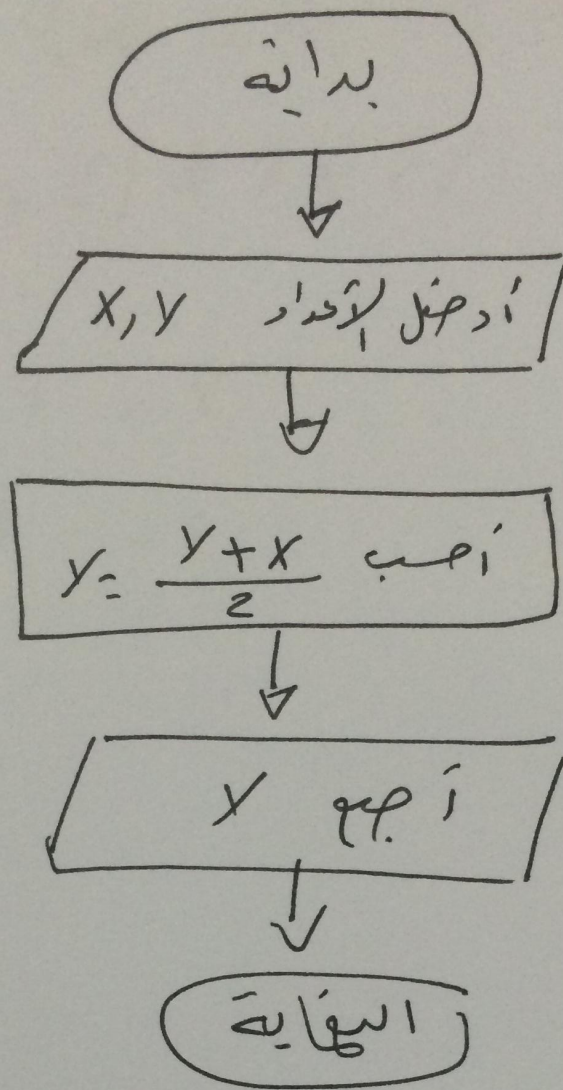 بداية
أدخل الأعداد X, Y
أحسب Y = \frac{Y + X}{2}
Y
النهاية